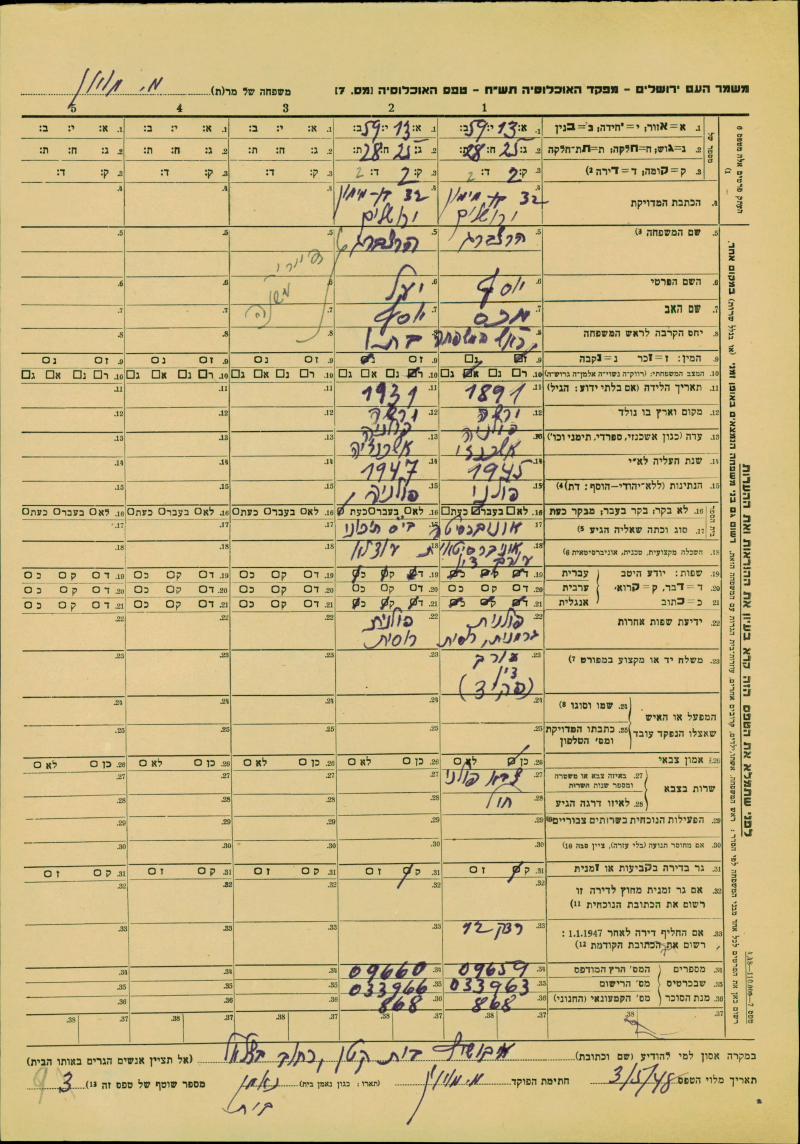 משמר העם ירושלים – מפקד האוכלוסיה תש״ח – טפס האוכלוסיה [מס. 7] משפחה של מר(ת)
1 2 3 4 5
א=אזור; י=יחידה; ב=בנין .1 א: 13 י: 59 ב: .1 א: 13 י: 59 ב: .1 א: י: ב: .1 א: י: ב: .1 א: י: ב:
ג=גוש; ח=חלקה; ת=תת-חלקה .2 ג: 25 ח: 28 ת: .2 ג: 25 ח: 28 ת: .2 ג: ח: ת: .2 ג: ח: ת: .2 ג: ח: ת:
ק=קומה; ד=דירה (2 .3 ק: 2 ד: 2 .3 ק: 2 ד: 2 .3 ק: ד: .3 ק: ד: .3 ק: ד:
.4 הכתבת המדויקת 32 בן-מימון ירושלים 32 בן-מימון ירושלים
.5 שם המשפחה (3 הרצברג הרצברג
.6 השם הפרטי יוסף יעל
.7 שם האב מכס יוסף
.8 יחס הקרבה לראש המשפחה ראש המשפחה בת
.9 המין: ז=זכר נ=נקבה
.10 המצב המשפחתי: (רווק״ה נשוי״ה אלמן״ה גרוש״ה)
.11 תאריך הלידה (אם בלתי ידוע: הגיל) 1891 1931
.12 מקום וארץ בו נולד ורשה פולניה ורשה פולניה
.13 עדה (כגון אשכנזי, ספרדי, תימני וכו׳) אשכנזי אשכנזיה
.14 שנת העליה לא״י 1945 1947
.15 הנתינות (ללא-יהודי–הוסף: דת) (4 פולני פולניה
.16 לא בקר; בקר בעבר; מבקר כעת
.17 סוג וכתה שאליה הגיע (5 אוניברסיטה ביס תיכוני
.18 השכלה מקצועית, טכנית, אוניברסיטאית (6 אוניברסיטאית עורך דין
שפות: יודע היטב עברית .19
ד=דבר, ק=קרוא, ערבית .20
כ=כתוב אנגלית .21
.22 ידיעת שפות אחרות פולנית גרמנית, רוסית פולנית רוסית
.23 משלח יד או מקצוע במפורט (7 עורך דין (פקיד)
המפעל או האיש שאצלו הנפקד עובד
.24 שמו וסוגו (8
.25 כתבתו המדויקת ומס׳ הטלפון
.26 אמון צבאי כן לא
שרות בצבא .27 באיזה צבא או משטרה ומספר שנות השרות צבא פולני
.28 לאיזו דרגה הגיע חיל
.29 הפעילות הנוכחית בשרותים צבוריים (9
.30 אם מחוסר תנועה (בלי עזרה), ציין סבה (10
.31 גר בדירה בקביעות או זמנית
.32 אם גר זמנית מחוץ לדירה זו רשום את הכתובת הנוכחית (11
.33 אם החליף דירה לאחר 1.1.1947: רשום את הכתובת הקודמת (12
מספרים שבכרטיס מנת הסוכר
.34 המס׳ הרץ המודפס 09659 09660
.35 מס׳ הרישום 033963 033966
.36 מס׳ הקמעונאי (החנוני) 868 868
.37 .38
במקרה אסון למי להודיע (שם וכתובת) בית קטן, רחוב בצלאל (אל תציין אנשים הגרים באותו הבית)
תאריך מלוי הטפס 3/5/48 חתימת הפוקד (תארו: כגון נאמן בית) נאמן בית מספר שוטף של טפס זה (13 3
לפני שתמלא את הטפס הזה קרא בעיון את ההוראות ואת ההערות